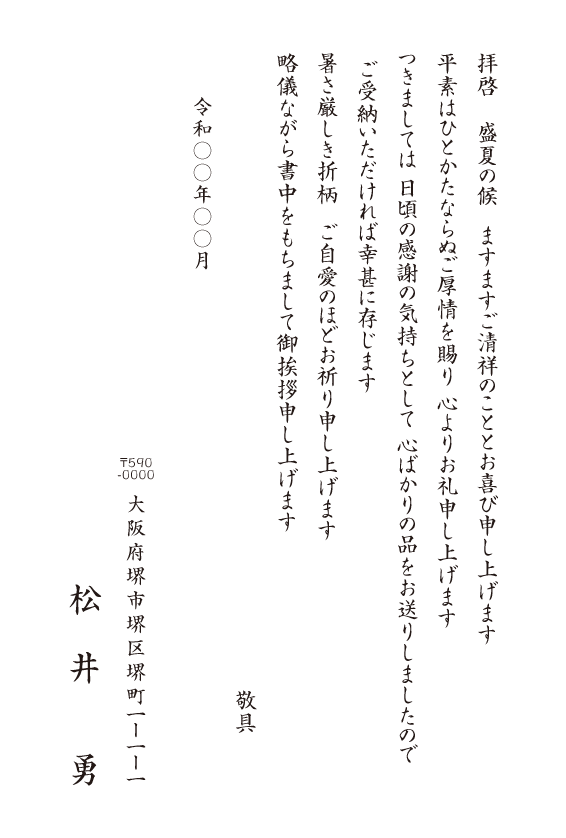 拝啓　盛夏の候　ますますご清祥のこととお喜び申し上げます
平素はひとかたならぬご厚情を賜り 心よりお礼申し上げます
つきましては 日頃の感謝の気持ちとして 心ばかりの品をお送りしましたので
ご受納いただければ幸甚に存じます
暑さ厳しき折柄　ご自愛のほどお祈り申し上げます
略儀ながら書中をもちまして御挨拶申し上げます
敬具
令和〇〇年〇〇月
〒590
-0000
大阪府堺市堺区堺町一ー一ー一
松井　勇